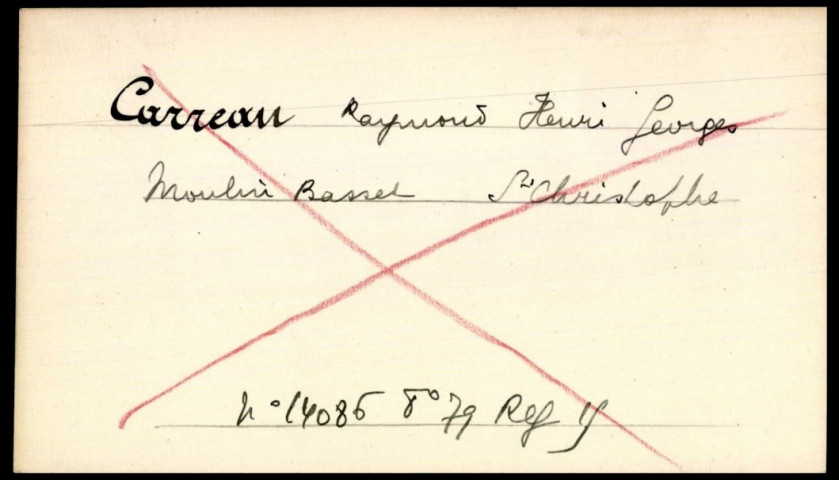 Carreau Raymond Henri Georges
Moulin Basset St Christophe
N° 14086 F° 79 Reg